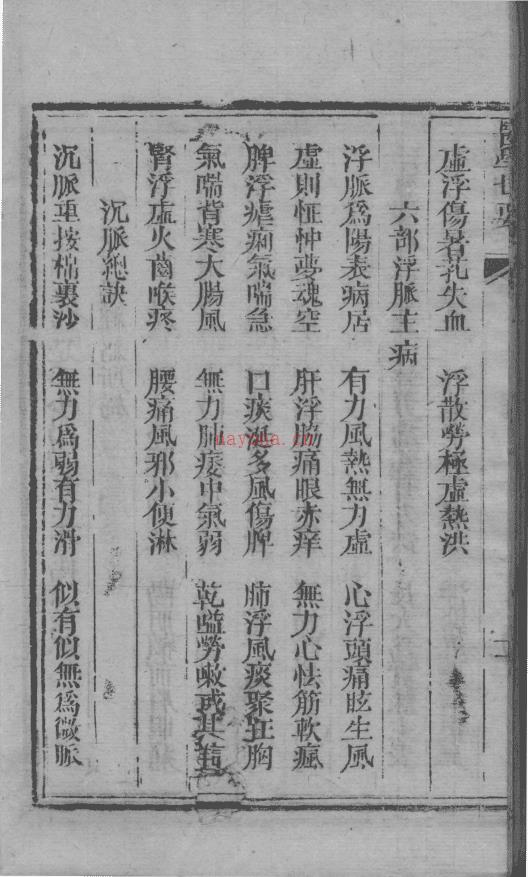 醫學
虛浮傷暑芤失血 浮散勞極虛熱洪
六部浮脈主病
浮脈爲陽表病居 有力風熱無力虛 心浮頭痛眩生風
虛則怔忡夢魂空 肝浮脇痛眼赤痒 無力心怯筋軟瘋
脾浮瘧痢氣喘急 口痰涎多風傷脾 肺浮風痰聚在胸
氣喘背寒大腸風 無力肺痿中氣弱 乾嗌勞嗽或其
腎浮虛火齒喉疼 腰痛風邪小便淋
沉脈總訣
沉脈重按棉裹沙 無力爲弱有力滑 似有似無爲微脈